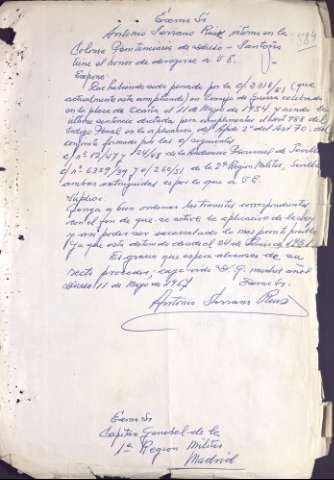 Excmo Sr
Antonio Serrano Ruiz, interno en la
Colonia Penitenciaria de - Santoña
tiene el honor de dirigirse a V.E.
Expone
Que habiendo sido penado por la c/ que
actualmente esta cumpliendo, en Consejo de Guerra celebrado
en la plaza de Ocaña el 11 de Mayo de 1954 y siendo
ultima sentencia dictada, por cumplimentar el art 988 de la
Código Penal en la del art 70, de
conjunto formada por las c/ siguientes
c/ nº de la Audiencia Provincial de Sevilla
c/ nº y de la 2ª Region Militar, Sevilla
ambas extinguidas es por lo que a V.E.
Suplica
Tenga a bien ordenar los tramites correspondientes
con el fin de que se active la aplicación de la ley
y asi poder ser lo mas pronto posible
ya que esta detenido desde el
Es gracia que espera alcanzar de su
recto proceder, cuya vida D. G. muchos años
11 de Mayo de 196 Excmo Sr.
Antonio Serrano Ruiz
Excmo Sr
Capitan General de la
1ª Region Militar
Madrid